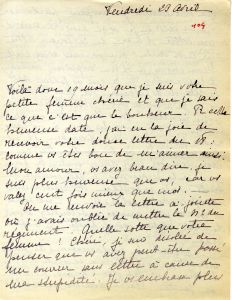 Vendredi 29 Avril
Voilà donc 19 mois que je suis votre
petite femme chérie et que je sais
ce que c'est que le bonheur. Et cette
heureuse date, j'ai eu la joie de
recevoir votre douce lettre du
comme vs êtes bon de m'aimer ainsi
mon amour, vs avez beau dire, je
suis plus heureuse que vs car vs
valez cent fois mieux que moi.
On me renvoie la lettre ci-jointe
où j'avais oublié de mettre le No du
régiment. Quelle sotte que votre
femme ! Chéri, je suis désolée de
penser que vs avez peut être passé
un courrier sans lettre à cause de
ma stupidité. Je vs embrasse plus